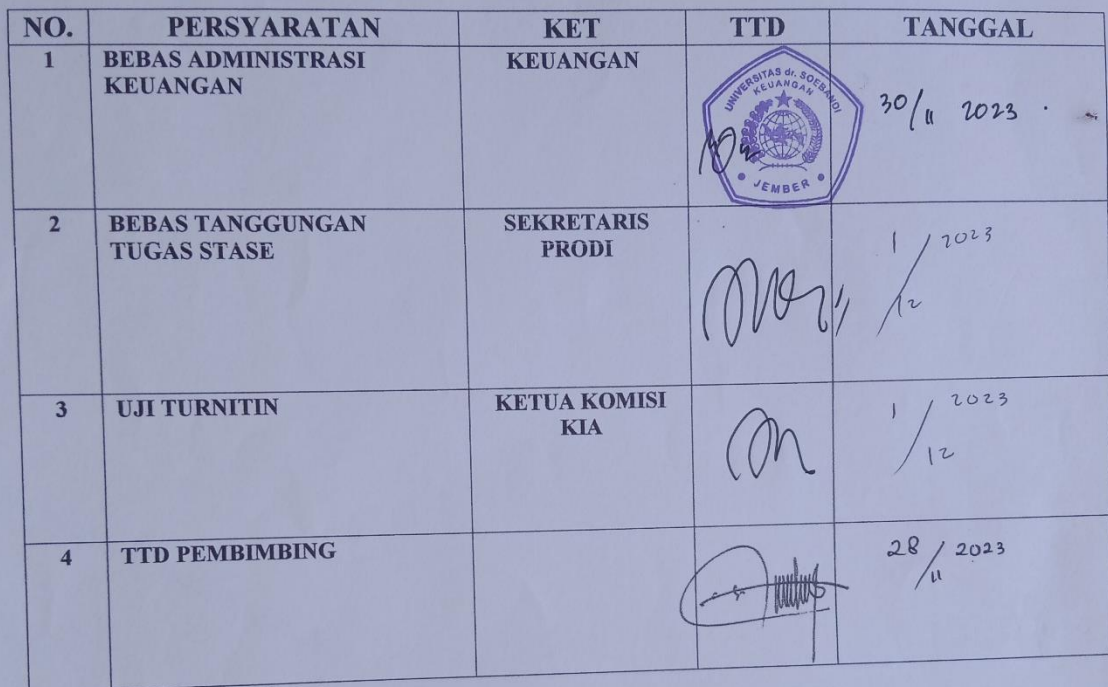 NO. PERSYARATAN KET TTD TANGGAL
1 BEBAS ADMINISTRASI KEUANGAN
KEUANGAN
UNIVERSITAS dr. SOEBANDI
KEUANGAN
JEMBER
30/11 2023
2 BEBAS TANGGUNGAN SEKRETARIS
TUGAS STASE PRODI
1/12 2023
3 UJI TURNITIN KETUA KOMISI
KIA
1/12 2023
4 TTD PEMBIMBING
28/11 2023